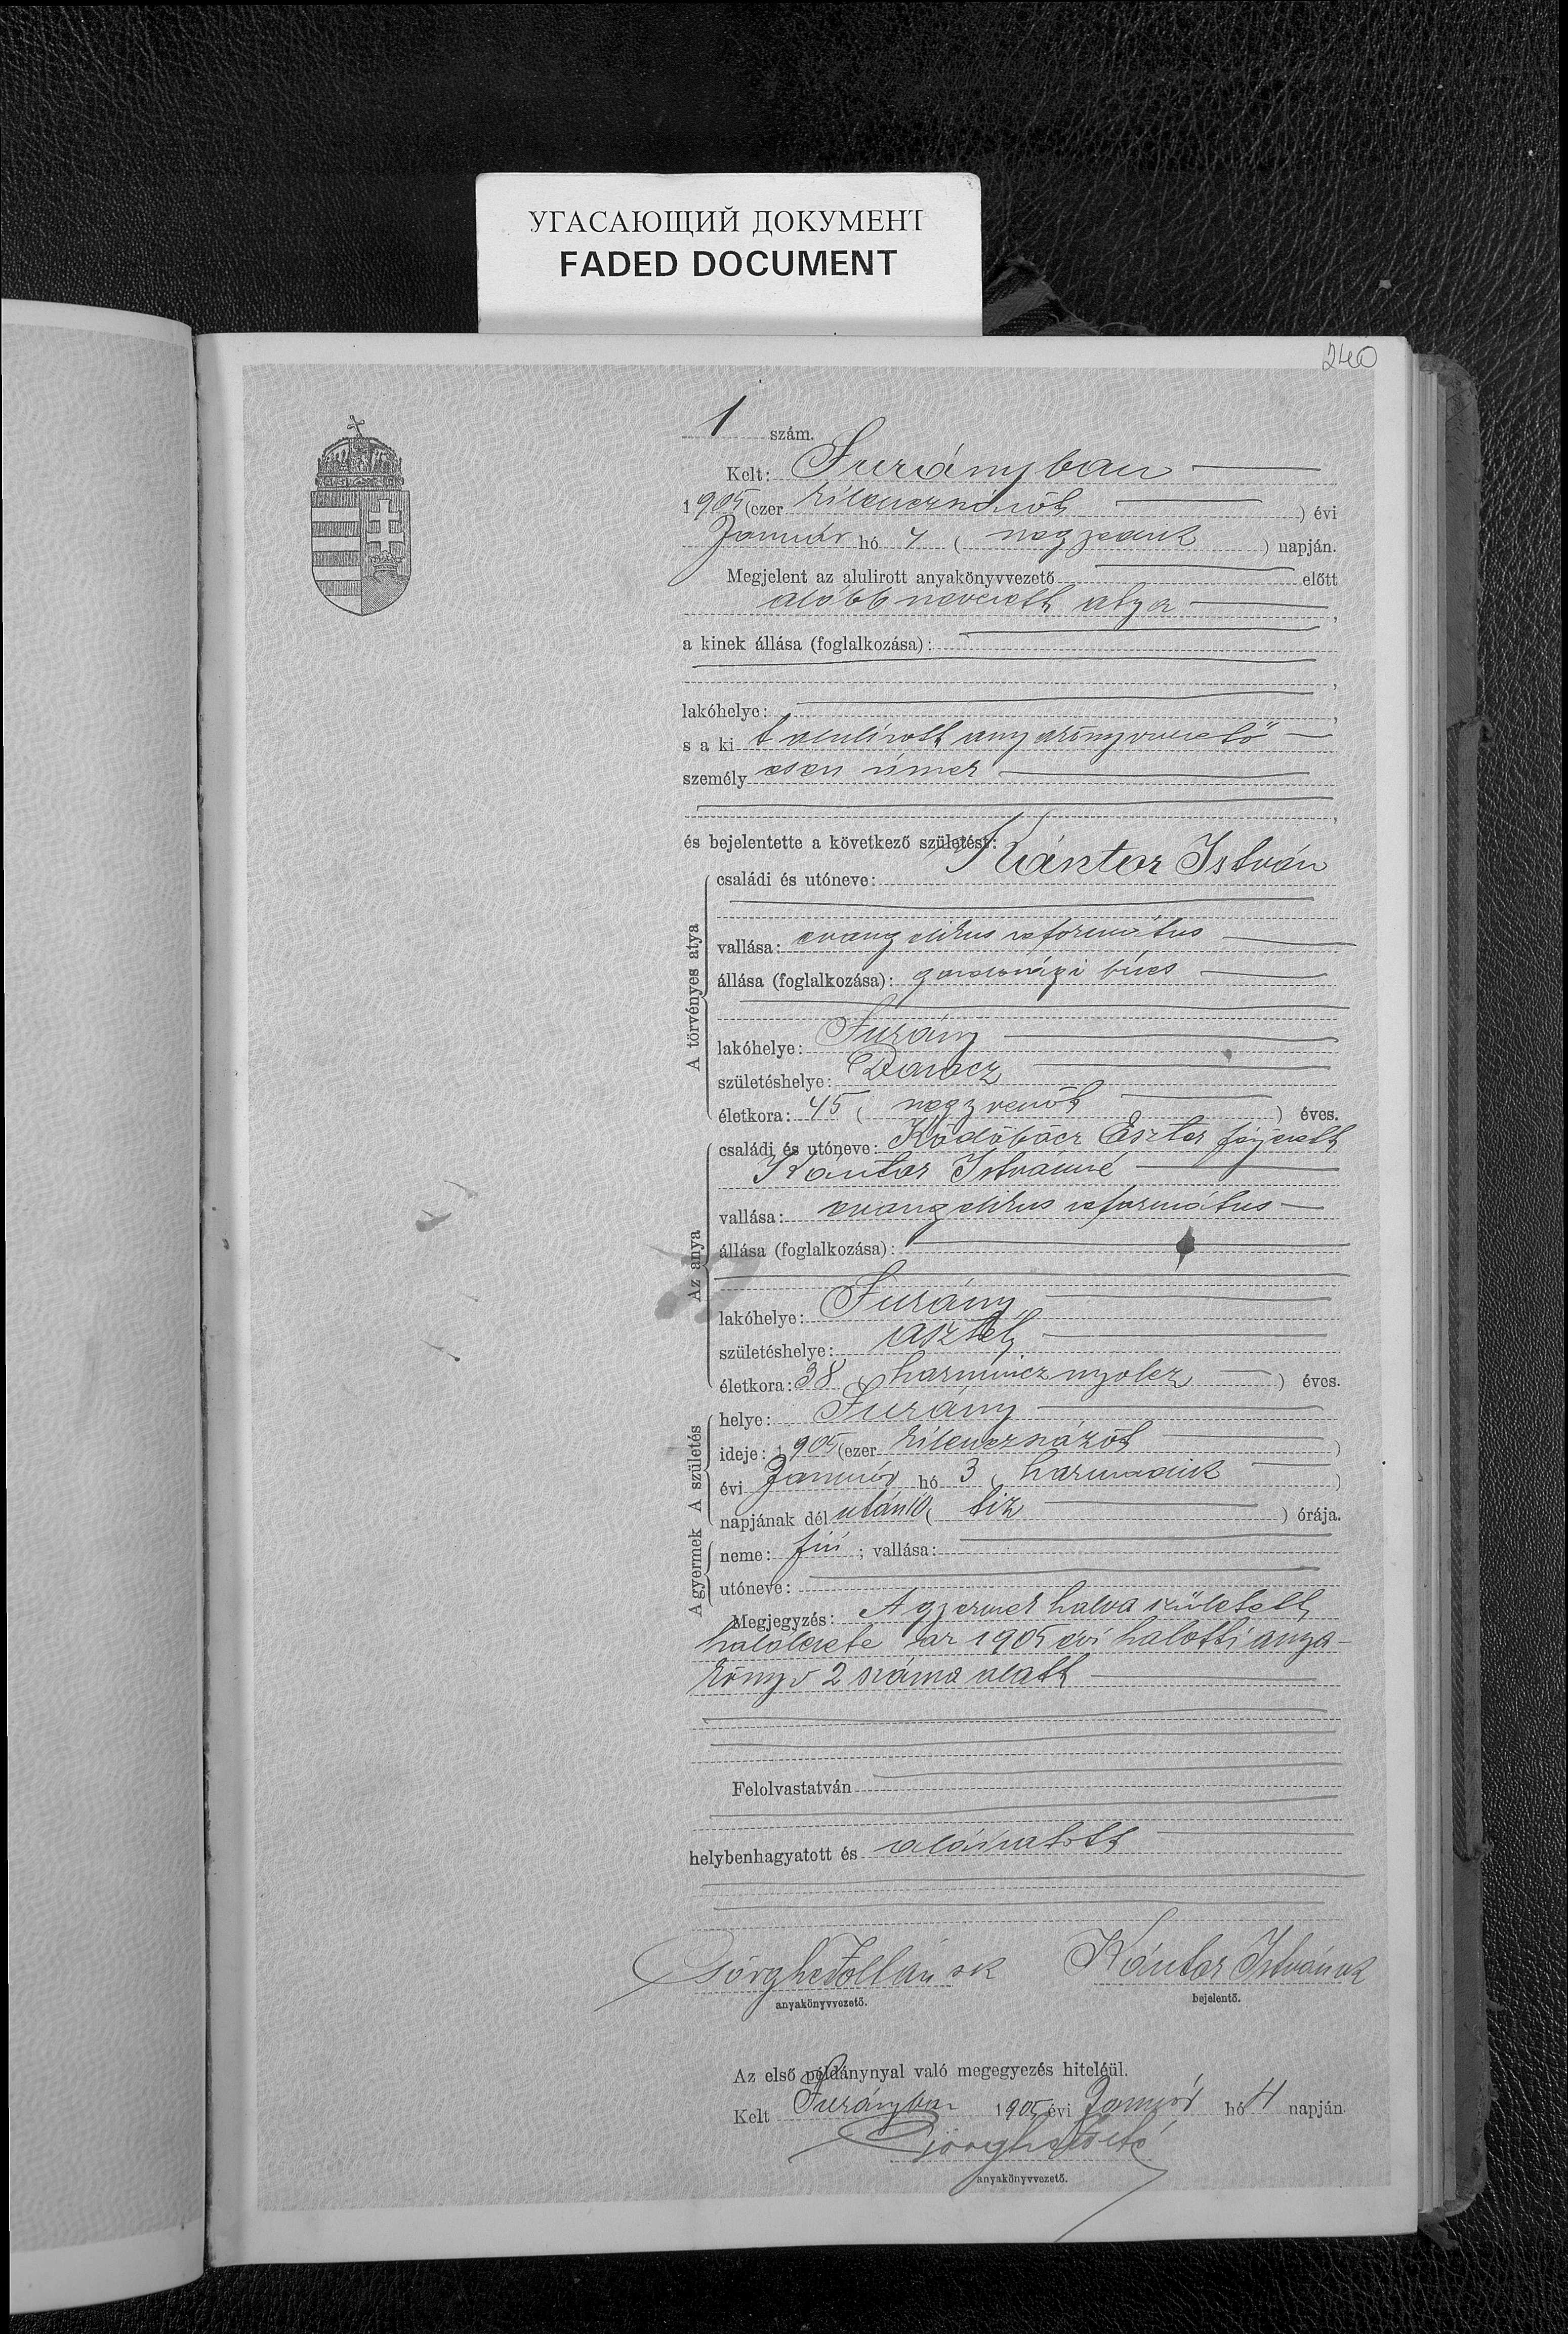 УГАСАЮЩИЙ ДОКУМЕНТ
FADED DOCUMENT
240
1 szám.
Kelt: Surányban
1905 (ezer kilenczszázöt) évi
Január hó 4 (negyedik) napján.
Megjelent az alulirott anyakönyvvezető előtt
alább nevezett atya,
a kinek állása (foglalkozása):
,
lakóhelye: ,
s a ki t alulirott anyakönyvvezető
személyesen ismer
,
és bejelentette a következő születést:
A törvényes atya
családi és utóneve: Kántor István
vallása: evangelikus református
állása (foglalkozása): gazdasági béres
lakóhelye: Surány
születéshelye: Darócz
életkora: 45 (negyvenöt) éves.
Az anya
családi és utóneve: Eszter férjezett
Kántor Istvánné
vallása: evangelikus református
állása (foglalkozása):
lakóhelye: Surány
születéshelye: Asztély
életkora: 38 (harmincznyolcz) éves.
A születés
helye: Surány
ideje: 1905 (ezer kilenczszázöt)
évi Január hó 3 (harmadik)
napjának délutáni 10 (tiz) órája.
A gyermek
neme: fiú; vallása:
utóneve:
Megjegyzés: A gyermek halva született,
halálesete az 1905 évi halotti anya-
könyv 2 száma alatt
Felolvastatván
helybenhagyatott és aláíratott
sk Kántor István sk
anyakönyvvezető. bejelentő.
Az első példánynyal való megegyezés hiteléül.
Kelt Surányban 1905 évi Január hó 4 napján
anyakönyvvezető.